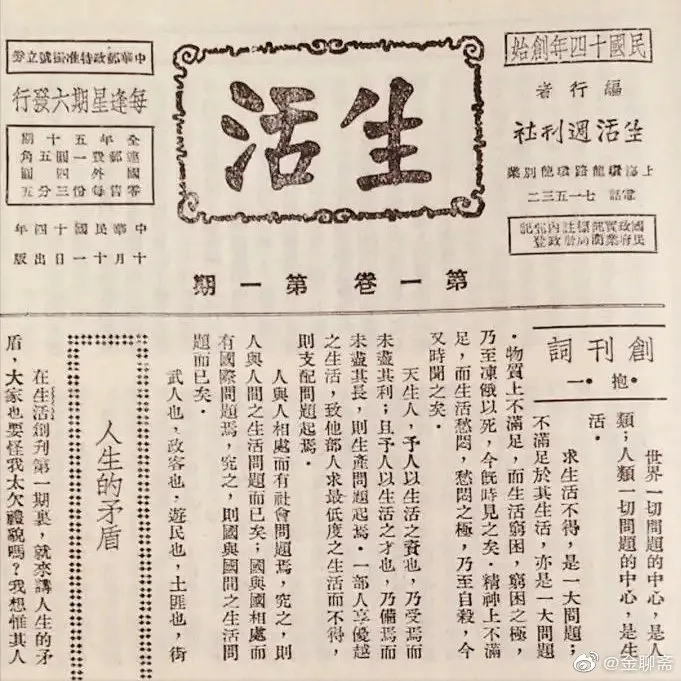 民國十四年創始
編行者
生活週刊社
上海環龍路環龍別業
電話 七一五三二
國民政府實業部商標局註冊內政部登記
生活
第一卷 第一期
中華郵政特准掛號立券
每逢星期六發行
全年五十期
連郵費一圓五角
國外四圓
零售每份三分五
中華民國十四年
十月十一日出版
創刊詞
．抱．一
世界一切問題的中心，是人
類；人類一切問題的中心，是生
活．
求生活不得，是一大問題；
不滿足於其生活，亦是一大問題
．物質上不滿足，而生活窮困，窮困之極，
乃至凍餓以死，今旣時見之矣．精神上不滿
足，而生活愁悶，愁悶之極，乃至自殺，今
又時聞之矣．
天生人，予人以生活之資也，乃受焉而
未盡其利；且予人以生活之才也，乃備焉而
未盡其長，則生產問題起焉．一部人享優越
之生活，致他部人求最低度之生活而不得，
則支配問題起焉．
人與人相處而有社會問題焉，究之，則
人與人間之生活問題而已矣；國與國相處而
有國際問題焉，究之，則國與國間之生活問
題而已矣．
武人也，政客也，遊民也，土匪也，街
人生的矛盾
在生活創刊第一期裏，就來講人生的矛
盾，大家也要怪我太欠禮貌嗎？我想惟其人
@金聊斋